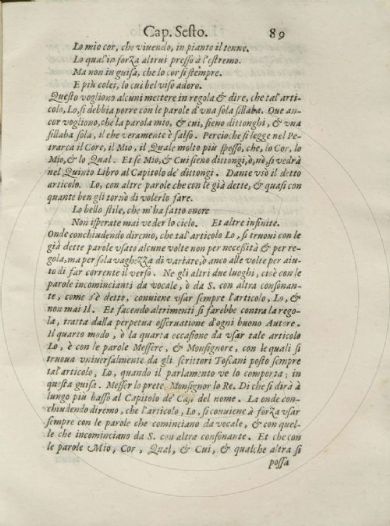 Cap. Sesto. 89
Lo mio cor, che viuendo, in pianto il tenne.
Lo qual in forza altrui presso à l'estremo.
Ma non in guisa, che lo cor si stempre.
E più colei, lo cui bel viso adoro.
Questo vogliono alcuni mettere in regola & dire, che tal'arti-
colo, Lo, si debbia porre con le parole d'vna sola sillaba. Oue an-
cor vogliono, che la parola mio, & cui, sieno dittonghi, & vna
sillaba sola, il che veramente è falso. Percioche si legge nel Pe-
trarca il Core, il Mio, il Quale molto più spesso, che, lo Cor, lo
Mio, & lo Qual. Et se Mio, & Cui sieno dittongi, ò, nò, si vedrà
nel Quinto Libro al Capitolo de' dittongi. Dante vsò il detto
articolo. Lo, con altre parole che con le già dette, & quasi con
quante ben gli tornò di volerlo fare.
Lo bello stile, che m'ha fatto onore
Non isperate mai veder lo cielo. Et altre infinite.
Onde conchiudendo diremo, che tal'articolo Lo, si truoui con le
già dette parole vsato alcune volte non per necessità & per re-
gola, ma per sola vaghezza di variare, ò anco alle volte per aiu-
to di far corrente il verso. Ne gli altri due luoghi, cioè con le
parole incomincianti da vocale, ò da S. con altra consonan-
te, come s'è detto, conuiene vsar sempre l'articolo, Lo, &
non mai Il. Et facendo altrimenti si farebbe contra la rego-
la, tratta dalla perpetua osseruatione d'ogni buono Autore.
Il quarto modo, ò la quarta occasione da vsar tale articolo
Lo, è con le parole Messere, & Monsignore, con le quali si
truoua vniuersalmente da gli scrittori Toscani posto sempre
tal'articolo, Lo, quando il parlamento ve lo comporta, in
questa guisa. Messer lo prete, Monsignor lo Re. Di che si dirà à
lungo più basso al Capitolo de' Casi del nome. La onde con-
chiudendo diremo, che l'articolo, Lo, si conuiene à forza vsar
sempre con le parole che cominciano da vocale, & con quel-
le che incominciano da S. con altra consonante. Et che con
le parole Mio, Cor, Qual, & Cui, & qualche altra si
possa